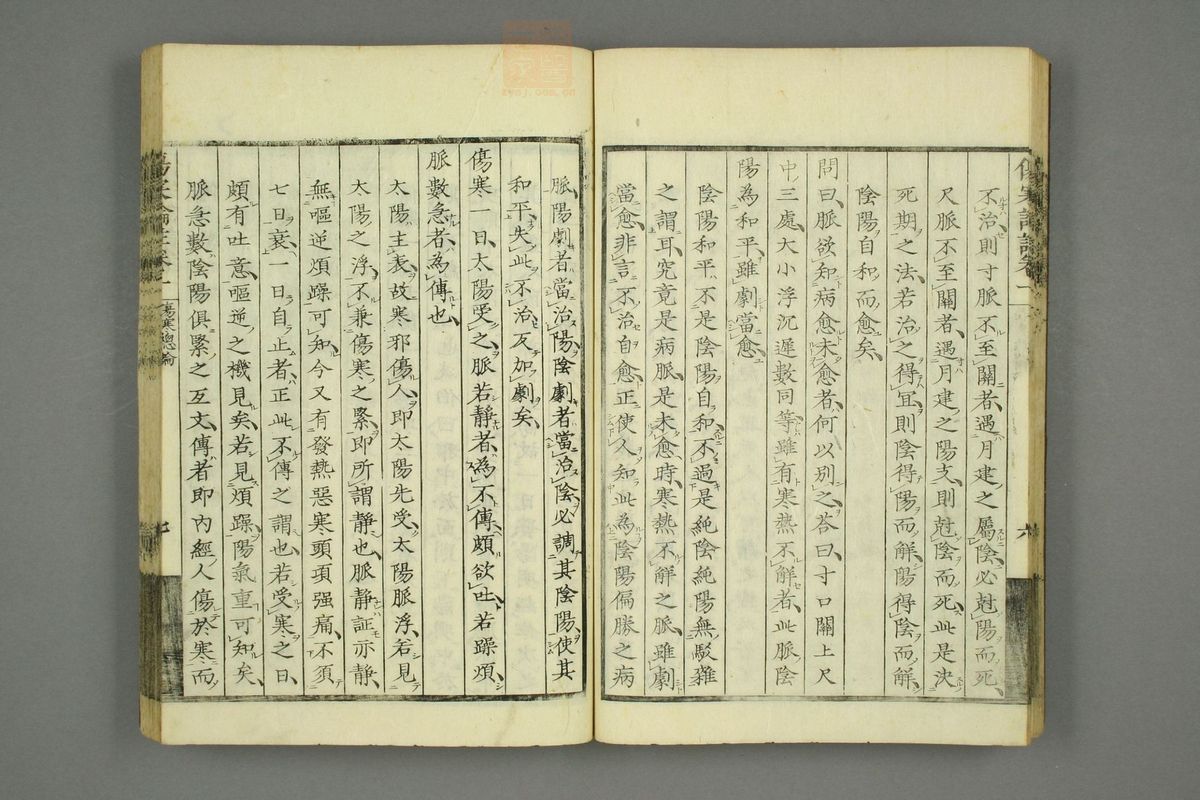 不治則寸脈不至關者遇月建之屬陰必尅陽而死
尺脈不至關者遇月建之陽支則尅陰而死此是決
死期之法若治之得宜則陰得陽而解陽得陰而解
陰陽自和而愈矣
問曰脈欲知病愈未愈者何以別之荅曰寸口關上尺
中三處大小浮沉遲數同等雖有寒熱不解者此脈陰
陽為和平雖劇當愈
陰陽和平不是陰陽自和不過是純陰純陽無駁雜
之謂耳究竟是病脈是未愈時寒熱不解之脈雖劇
當愈非言不治自愈正使人知此為陰陽偏勝之病
六
脈陽劇者當治陽陰劇者當治陰必調其陰陽使其
和平失此不治反加劇矣
傷寒一日太陽受之脈若靜者為不傳頗欲吐若躁煩
脈數急者為傳也
太陽主表故寒邪傷人即太陽先受太陽脈浮若見
太陽之浮不兼傷寒之緊即所謂靜也脈静証亦静
無嘔逆煩躁可知今又有發熱惡寒頭項强痛不須
七日衰一日自止者正此不傳之謂也若受寒之日
頗有吐意嘔逆之機見矣若見煩躁陽氣重可知矣
脈急數陰陽俱緊之互文傳者即內經人傷於寒而
傷寒總論